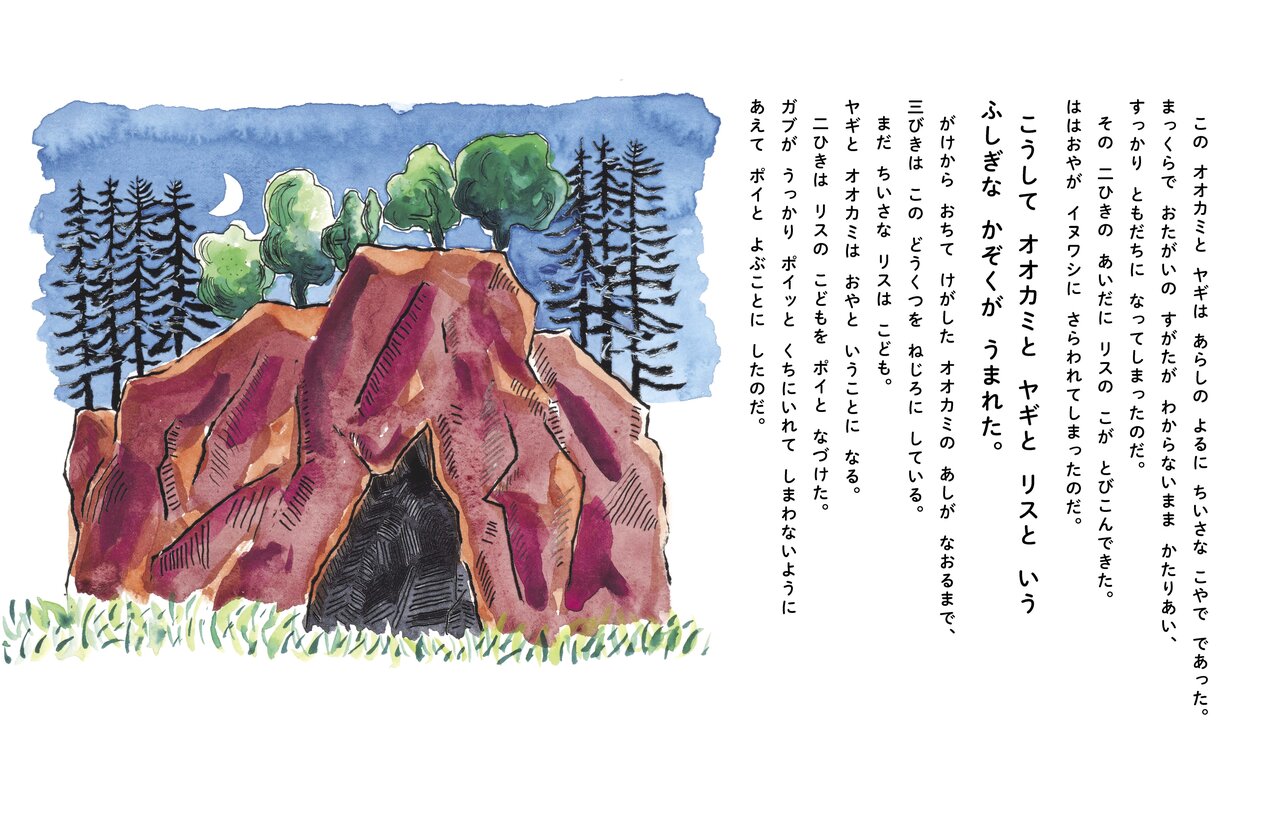 この オオカミと ヤギは あらしの よるに ちいさな こやで であった。
まっくらで おたがいの すがたが わからないまま かたりあい、
すっかり ともだちに なってしまったのだ。
その 二ひきの あいだに リスの こが とびこんできた。
ははおやが イヌワシに さらわれてしまったのだ。
こうして オオカミと ヤギと リスと いう
ふしぎな かぞくが うまれた。
がけから おちて けがした オオカミの あしが なおるまで、
三びきは この どうくつを ねじろに している。
まだ ちいさな リスは こども。
ヤギと オオカミは おやと いうことに なる。
二ひきは リスの こどもを ポイと なづけた。
ガブが うっかり ポイッと くちにいれて しまわないように
あえて ポイと よぶことに したのだ。